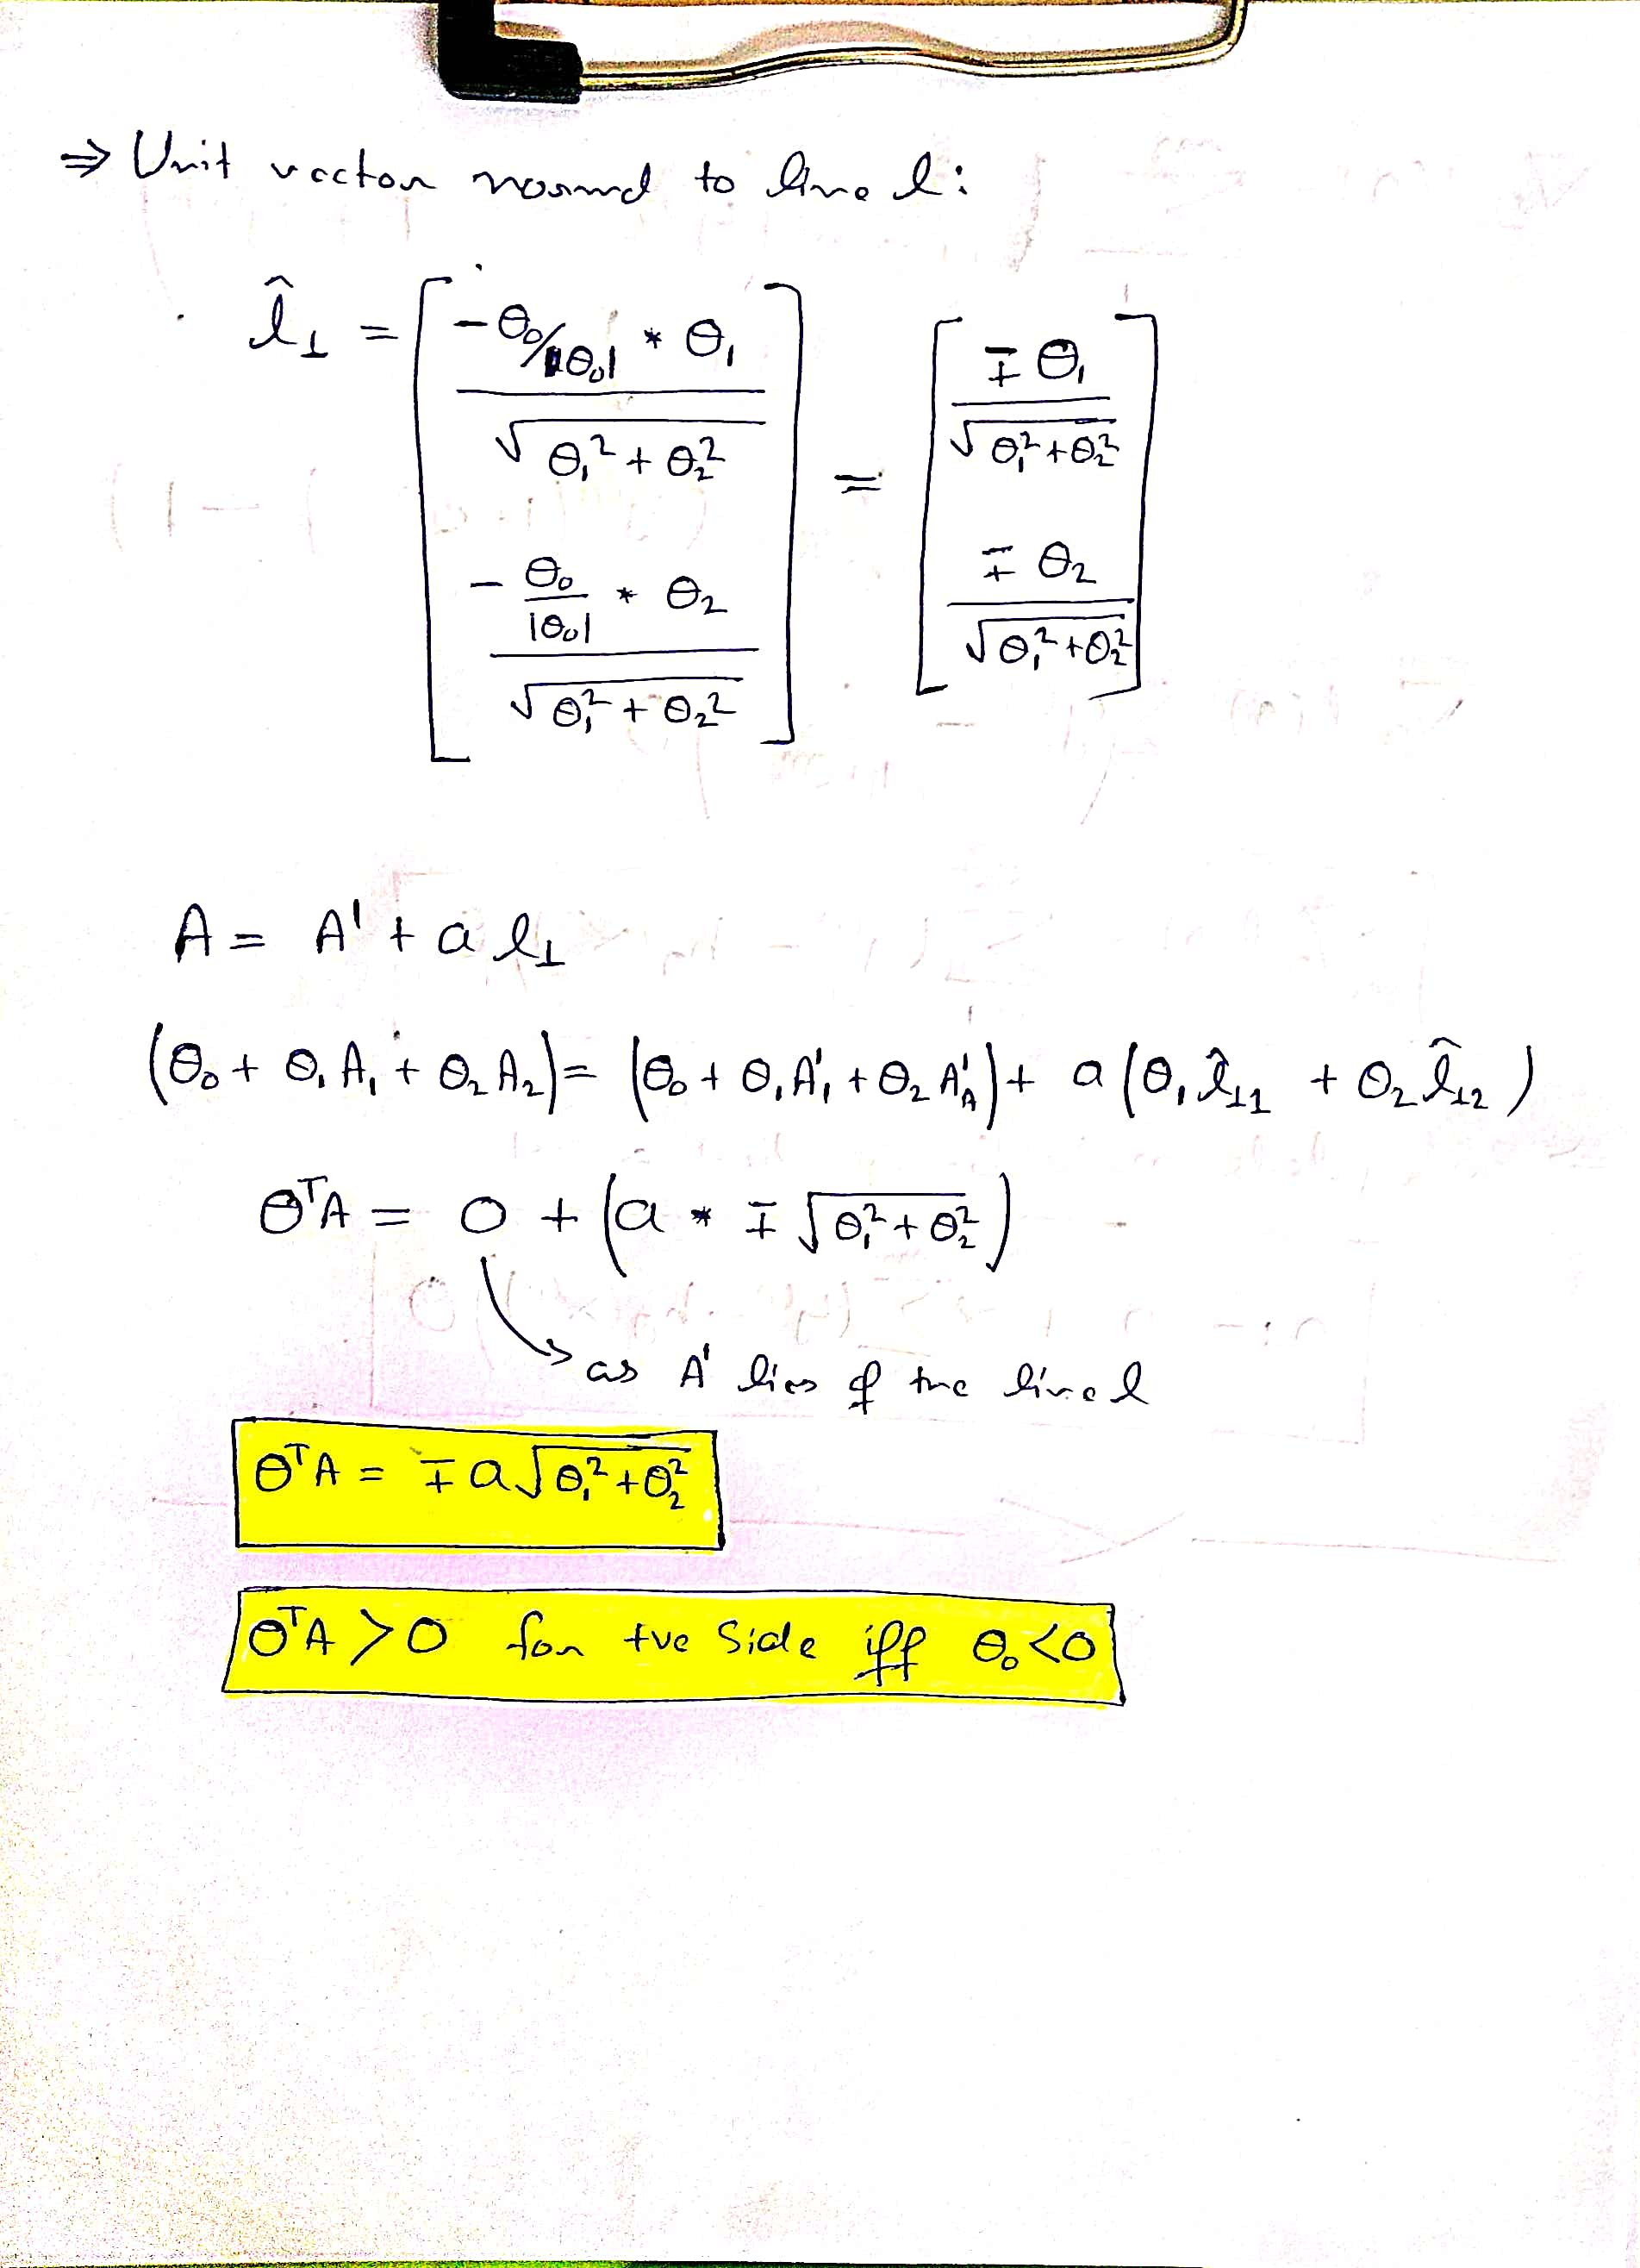 ⇒ Unit vector normal to line l:
l̂⊥ = [ (-θ₀/|θ₀| * θ₁) / √(θ₁² + θ₂²) ; (-θ₀/|θ₀| * θ₂) / √(θ₁² + θ₂²) ] = [ ∓θ₁ / √(θ₁² + θ₂²) ; ∓θ₂ / √(θ₁² + θ₂²) ]
A = A' + a l⊥
(θ₀ + θ₁A₁ + θ₂A₂) = (θ₀ + θ₁A'₁ + θ₂A'₂) + a(θ₁ l̂⊥₁ + θ₂ l̂⊥₂)
θᵀA = 0 + (a * ∓√(θ₁² + θ₂²))
as A' lies of the line l
θᵀA = ∓a√(θ₁² + θ₂²)
θᵀA > 0 for +ve side iff θ₀ < 0